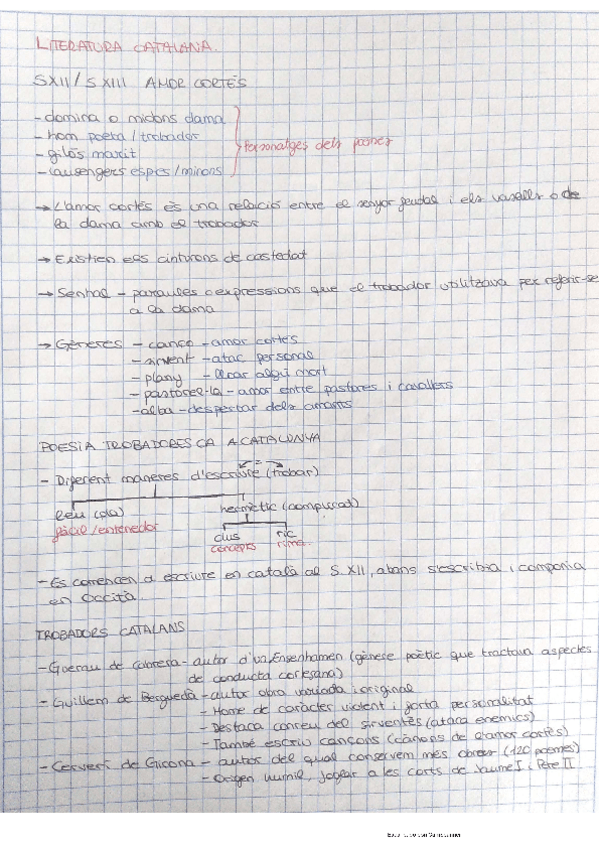 LITERATURA CATALANA.
SXII/SXIII AMOR CORTÉS
- domina o midons dama
- hom poeta / trobador
- gilós marit
- lausengers espies/minons
personatges dels poemes
→ L'amor cortés és una relació entre el senyor feudal i els vasalls o de
la dama amb el trobador
→ Existien els cinturons de castedat
→ Senhal - paraules o expressions que el trobador utilitzava per referir-se
a la dama
→ Gèneres - canço - amor cortés
- sirvent - atac personal
- plany - lloar algú mort
- pastorel·la - amor entre pastores i cavallers
- alba - despertar dels amants
POESIA TROBADORESCA A CATALUNYA
- Diferent maneres d'escriure (trobar)
leu (pla)
hermètic (complicat)
fàcil/entenedor
clus
ric
concepts
rima
- Es comencen a escriure en català al S.XII, abans s'escribia i componia
en Occità.
TROBADORS CATALANS
- Guerau de Cabrera - autor d'un Ensenhamen (gènere poètic que tractava aspectes
de conducta cortesana)
- Guillem de Berguedà - autor obra variada i original
- Home de caràcter violent i forta personalitat
- Destaca conreu del sirventès (ataca enemics)
- També escriu cançons (cànons de l'amor cortès)
- Cerverí de Girona - autor del qual conservem més obres (120 poemes)
- Origen humil, joglar a les corts de Jaume I i Pere II